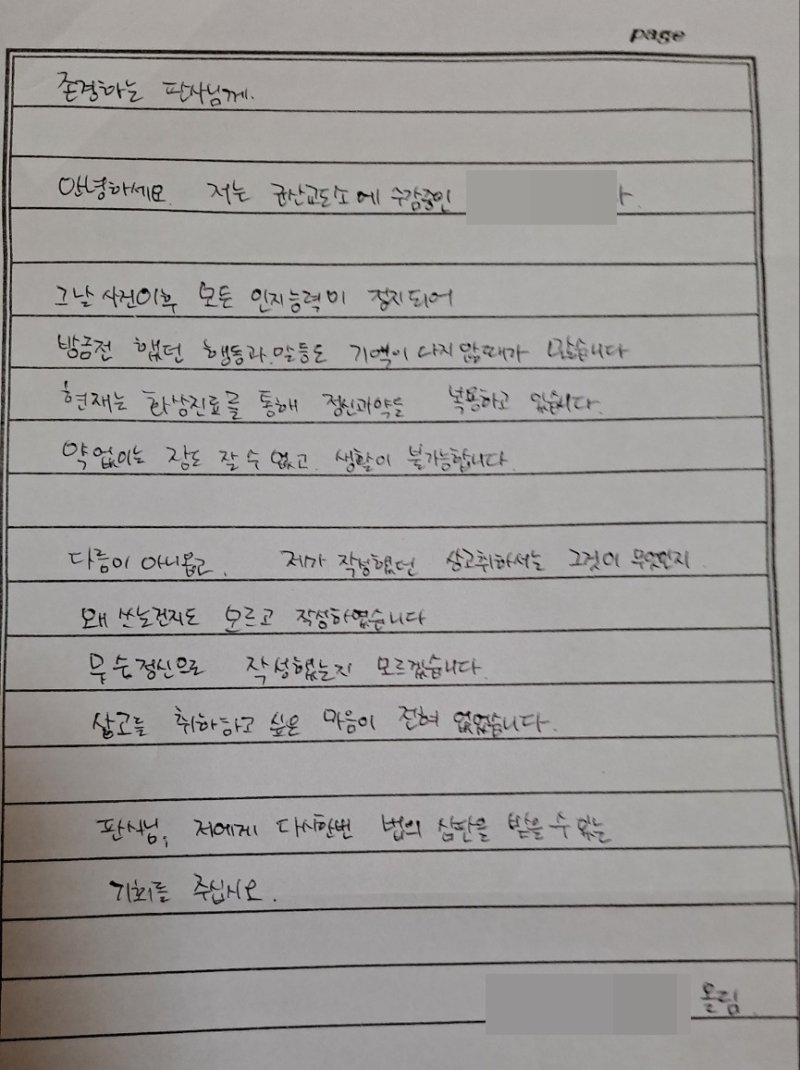 page
존경하는 판사님께.
안녕하세요. 저는 군산교도소에 수감중인
그날 사건이후 모든 인지능력이 정지되어
방금전 했던 행동과 말등도 기억이 나지 않을때가 많습니다
현재는 화상진료를 통해 정신과약을 복용하고 있습니다.
약 없이는 잠도 잘 수 없고. 생활이 불가능합니다.
다름이 아니옵고, 제가 작성했던 상고취하서는 그것이 무엇인지
왜 쓰는건지도 모르고 작성하였습니다
무슨정신으로 작성했는지 모르겠습니다.
상고를 취하하고 싶은 마음이 전혀 없었습니다.
판사님, 저에게 다시한번 법의 심판을 받을 수 있는
기회를 주십시오.
올림